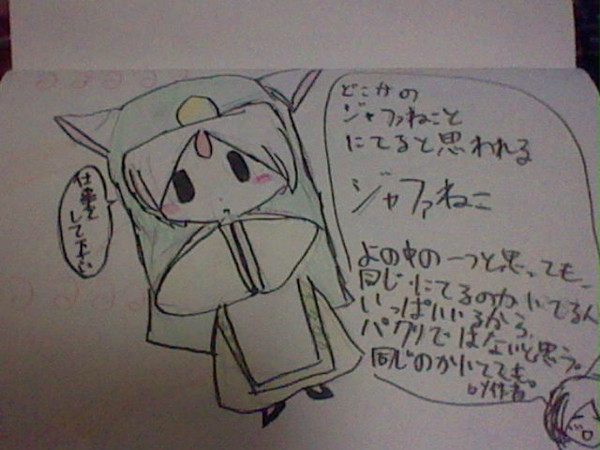 どこかの
ジャファねこと
にてると思われる
ジャファねこ
よの中の一つと思っても、
同じにてるのかいてる人
いっぱいいるから、
パクリではないと思う。
同じのかいてても。
by作者
仕事を
して下さい